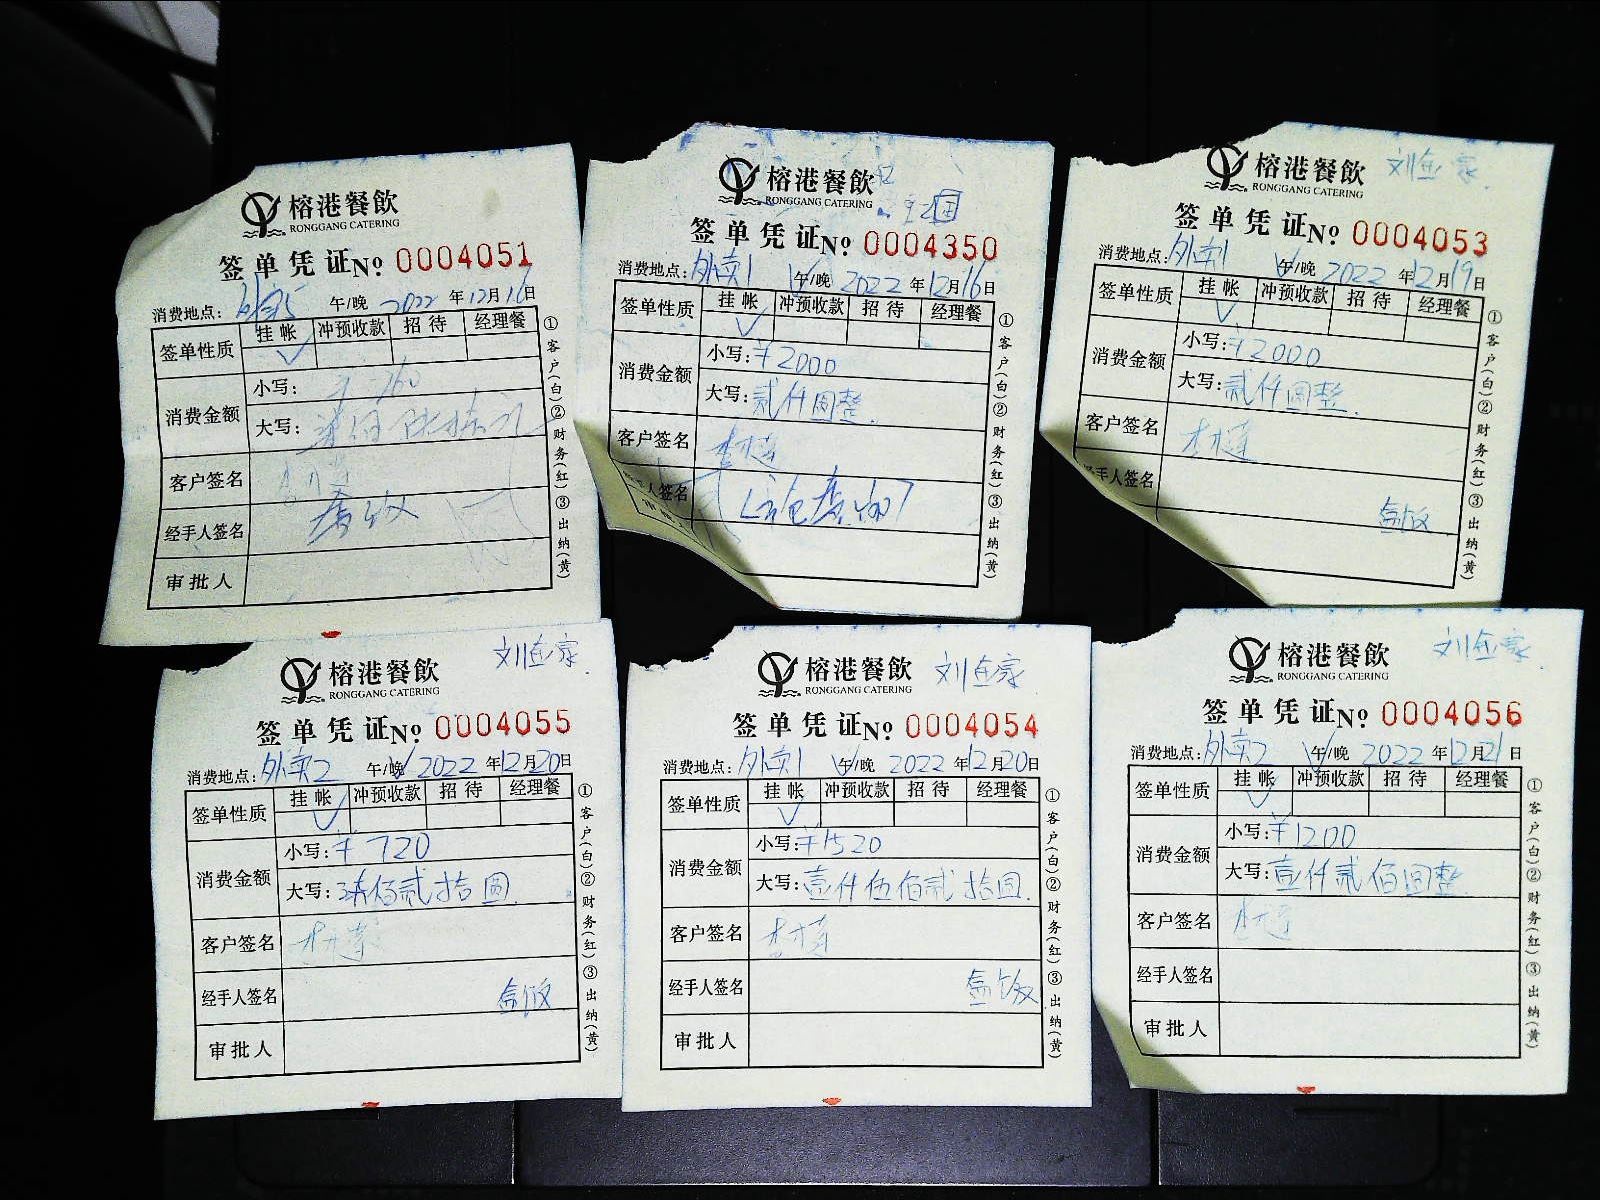 榕港餐飲
RONGGANG CATERING
签单凭证 No 0004051
消费地点: 外卖5 午/晚 2022年12月16日
签单性质 挂帐 冲预收款 招待 经理餐
✓
消费金额 小写: ¥760
大写:
客户签名
经手人签名
审批人
①客户(白)②财务(红)③出纳(黄)
榕港餐飲
RONGGANG CATERING
签单凭证 No 0004350
消费地点: 外卖1 午/晚 2022年12月16日
签单性质 挂帐 冲预收款 招待 经理餐
✓
消费金额 小写: ¥2000
大写: 贰仟圆整.
客户签名
人签名
审批
①客户(白)②财务(红)③出纳(黄)
榕港餐飲 刘鱼家.
RONGGANG CATERING
签单凭证 No 0004053
消费地点: 外卖1 午/晚 2022年12月19日
签单性质 挂帐 冲预收款 招待 经理餐
✓
消费金额 小写: ¥2000
大写: 贰仟圆整.
客户签名
手人签名
盒饭
①客户(白)②财务(红)③出纳(黄)
榕港餐飲 刘鱼家.
RONGGANG CATERING
签单凭证 No 0004055
消费地点: 外卖2 午/晚 2022年12月20日
签单性质 挂帐 冲预收款 招待 经理餐
✓
消费金额 小写: ¥720
大写: 柒佰贰拾圆.
客户签名
经手人签名 盒饭
审批人
①客户(白)②财务(红)③出纳(黄)
榕港餐飲 刘鱼家
RONGGANG CATERING
签单凭证 No 0004054
消费地点: 外卖1 午/晚 2022年12月20日
签单性质 挂帐 冲预收款 招待 经理餐
✓
消费金额 小写: ¥1520
大写: 壹仟伍佰贰拾圆.
客户签名
经手人签名 盒饭
审批人
①客户(白)②财务(红)③出纳(黄)
榕港餐飲 刘鱼家.
RONGGANG CATERING
签单凭证 No 0004056
消费地点: 外卖2 午/晚 2022年12月21日
签单性质 挂帐 冲预收款 招待 经理餐
✓
消费金额 小写: ¥1200
大写: 壹仟贰佰圆整.
客户签名
经手人签名
审批人
①客户(白)②财务(红)③出纳(黄)